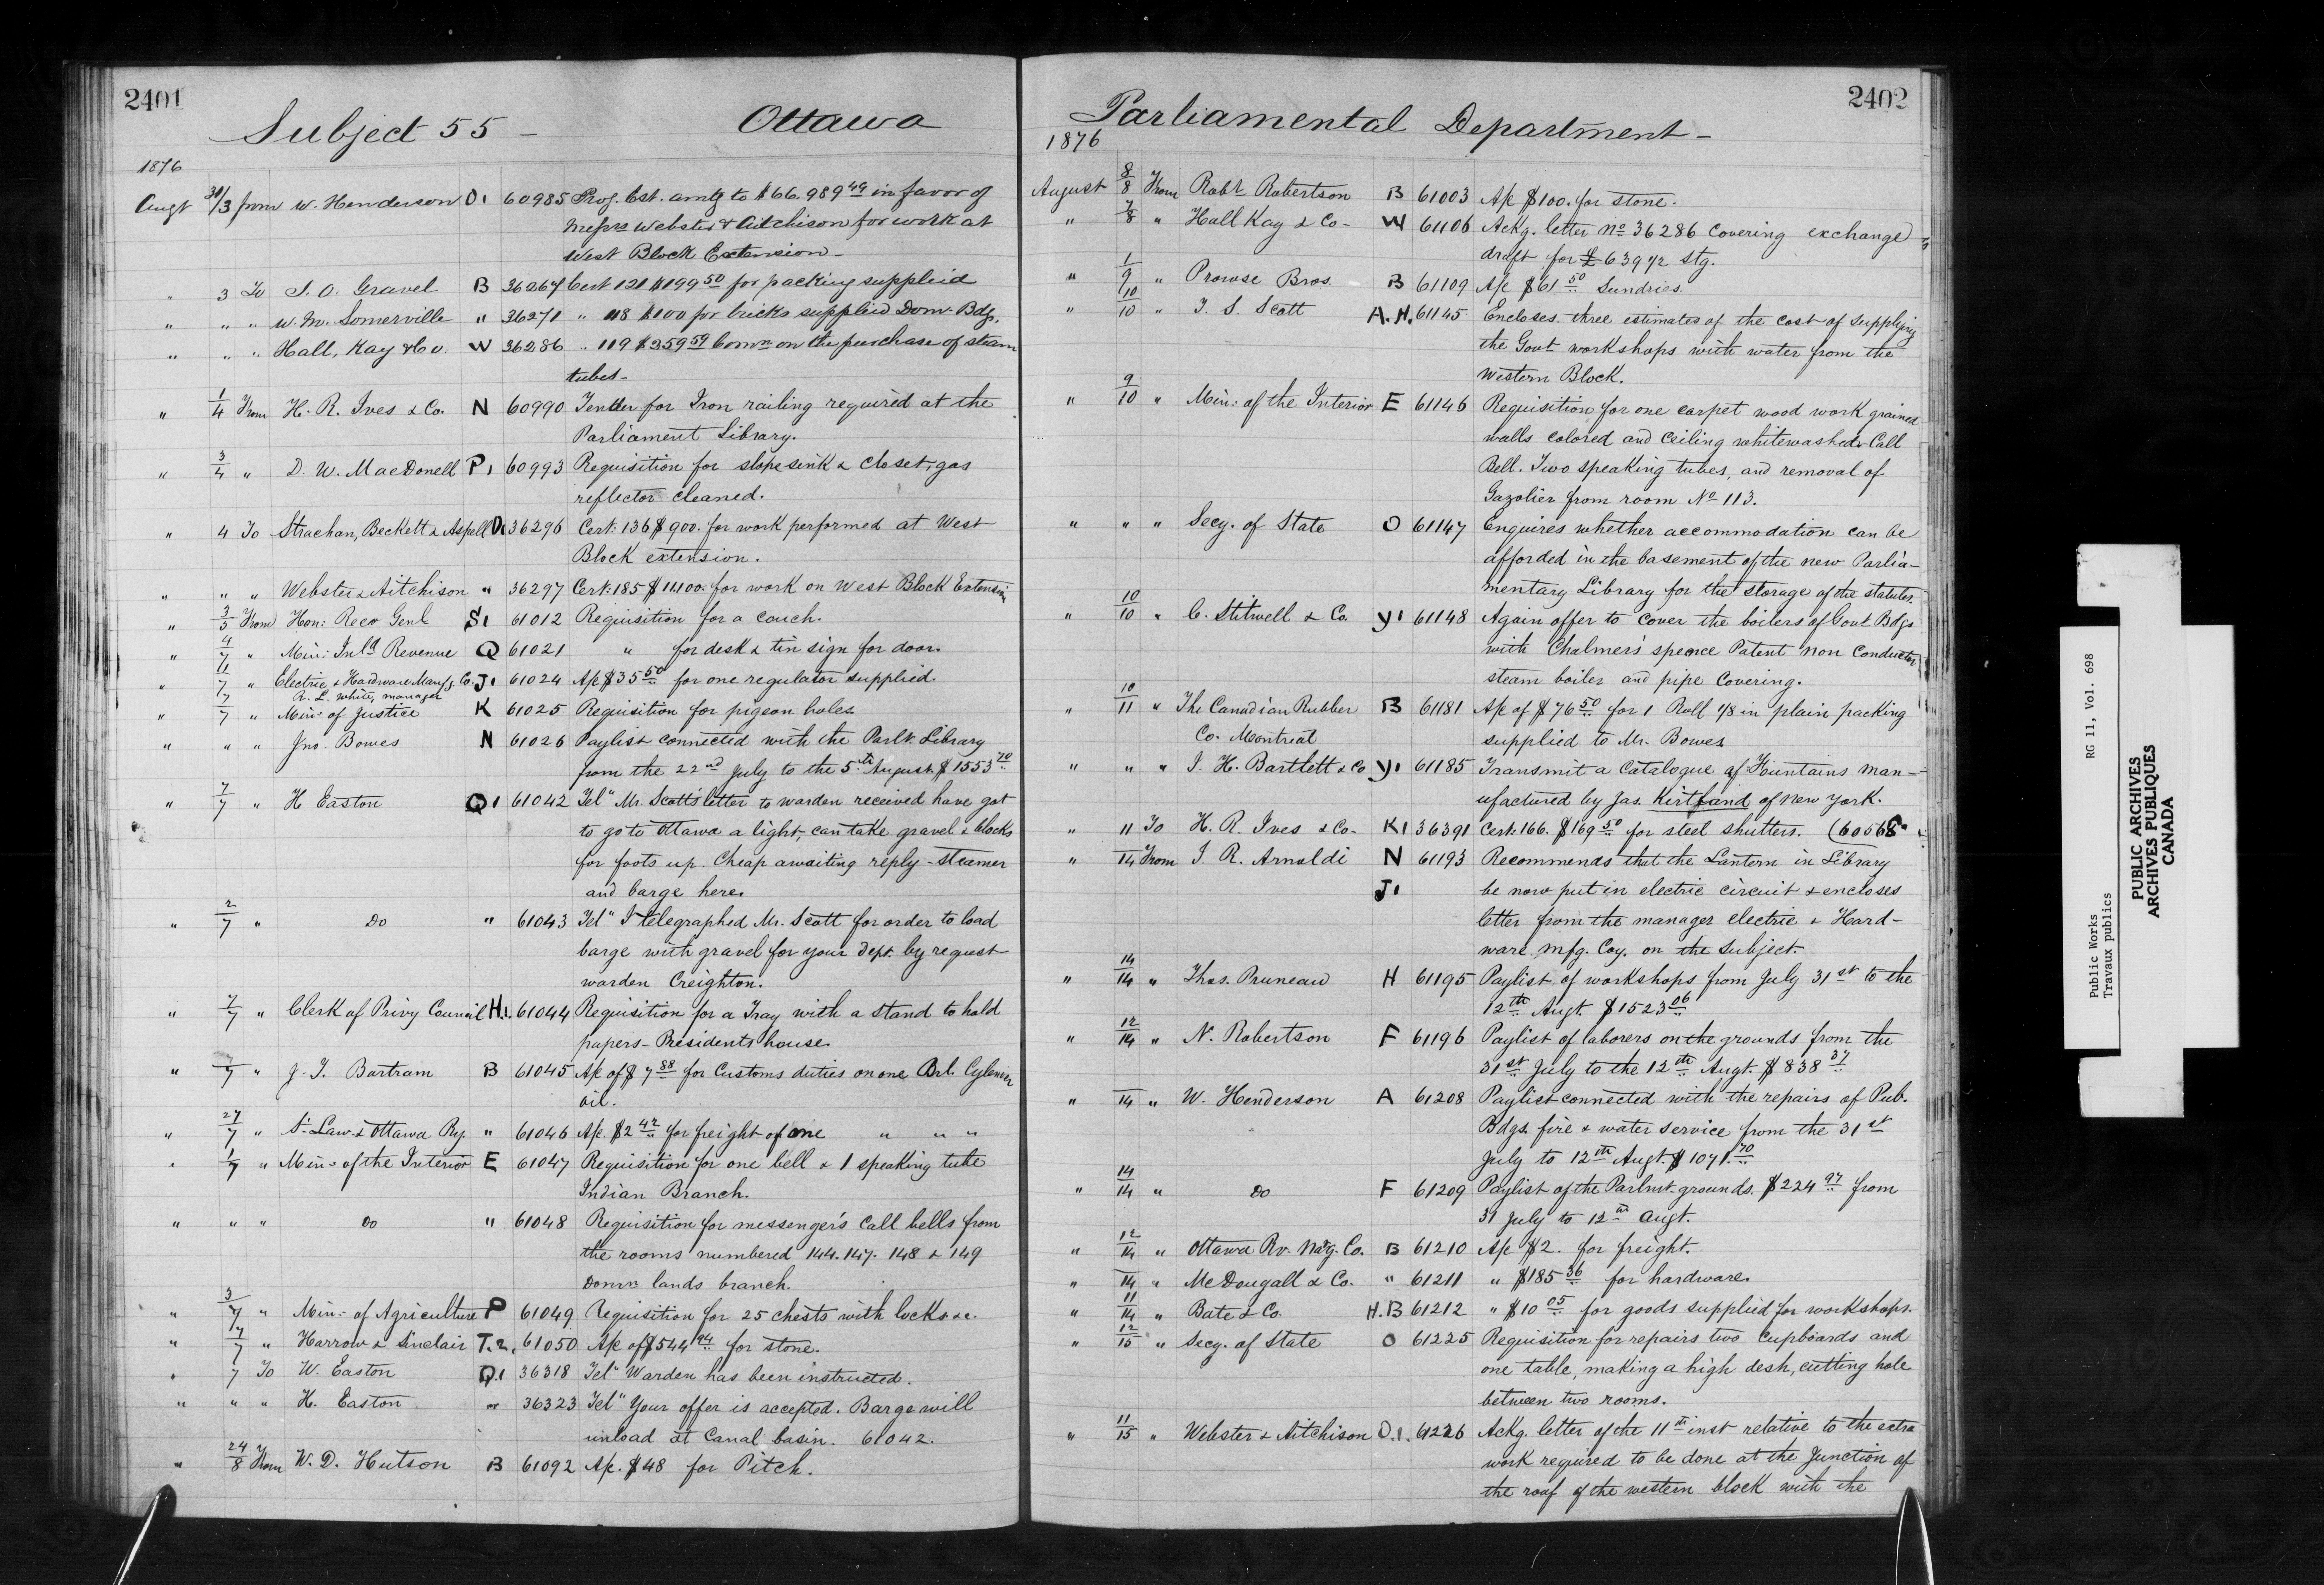 2401
Subject 55 - Ottawa
1876
Augt 31/3 from W. Henderson O1 60985 Prog. Est. amtg to $66.989 49 in favor of
Messrs Webster & Aitchison for work at
West Block Extension -
" 3 To J. O. Gravel B 36267 Cert 121 $199 50 for packing supplied
" " " W. M. Somerville " 36271 " 118 $100 for bricks supplied Domn Bdgs.
" " " Hall, Kay & Co. W 36286 " 119 $259 59 Comn on the purchase of steam
tubes -
" 1/4 From H. R. Ives & Co. N 60990 Tender for Iron railing required at the
Parliament Library.
" 3/4 " D. W. MacDonell P1 60993 Requisition for slope sink & closet, gas
reflector cleaned.
" 4 To Strachan, Beckett & Aspell O1 36296 Cert: 136 $900. for work performed at West
Block extension.
" " " Webster & Aitchison " 36297 Cert: 185 $11,100. for work on West Block Extension
" 3/5 From Hon: Recr Genl S1 61012 Requisition for a couch.
" 4/7 " Min: Inld Revenue Q 61021 " for desk & tin sign for door.
" 7 " Electric & Hardware Manfg. Co. J1 61024 A/c $35 50 for one regulator supplied.
R. L. White, manager
" 7/7 " Min: of Justice K 61025 Requisition for pigeon holes.
" " " Jno. Bowes N 61026 Paylist connected with the Parlt. Library
from the 22nd July to the 5th August $1553 70
" 7/7 " H Easton Q1 61042 Tel" Mr. Scott's letter to warden received have got
to go to Ottawa a light, can take gravel & blocks
for foots up. Cheap awaiting reply - steamer
and barge here.
" 2/7 " Do " 61043 Tel" I telegraphed Mr. Scott for order to load
barge with gravel for your Dept. by request
warden Creighton.
" 7/7 " Clerk of Privy Council H.1. 61044 Requisition for a Tray with a stand to hold
papers - Presidents house.
" 7 " J. T. Bartram B 61045 A/c of $7 88 for Customs duties on one Brl. Cylinder
oil.
" 27/7 " St. Law. & Ottawa Ry. " 61046 A/c. $2 42 for freight of one " " "
" 1/7 " Min: of the Interior E 61047 Requisition for one bell & 1 speaking tube
Indian Branch.
" " " Do " 61048 Requisition for messenger's call bells from
the rooms numbered 144. 147. 148 & 149
Domn lands branch.
" 3/7 " Min: of Agriculture P 61049 Requisition for 25 chests with locks &c.
" 7/7 " Harrow & Sinclair T.2. 61050 A/c of $544 94 for stone.
" 7 To W. Easton Q.1 36318 Tel" Warden has been instructed.
" " " H. Easton " 36323 Tel" Your offer is accepted. Barge will
unload at Canal basin. 61042.
" 24/8 From W. D. Hutson B 61092 A/c. $48 for Pitch.
2402
Parliamental Department -
1876
August 8/8 From Robt Robertson B 61003 A/c $100. for stone.
" 7/8 " Hall Kay & Co - W 61106 Ackg. letter No 36286 covering exchange
draft for £639 4/2 stg.
" 1/9 " Prowse Bros. B 61109 A/c $61 50 Sundries.
" 10/10 " T. S. Scott A.H. 61145 Encloses three estimates of the cost of supplying
the Govt workshops with water from the
Western Block.
" 9/10 " Min: of the Interior E 61146 Requisition for one carpet wood work grained
walls colored and ceiling whitewashed & Call
Bell. Two speaking tubes, and removal of
Gazolier from room No 113.
" " " Secy. of State O 61147 Enquires whether accommodation can be
afforded in the basement of the new Parlia-
mentary Library for the storage of the statutes.
" 10/10 " C. Stitwell & Co. Y1 61148 Again offer to cover the boilers of Govt Bdgs
with Chalmer's spence Patent non Conductor
steam boiler and pipe covering.
" 10/11 " The Canadian Rubber B 61181 A/c of $76 50 for 1 Roll 1/8 in plain packing
Co. Montreal supplied to Mr. Bowes
" " " J. H. Bartlett & Co Y1 61185 Transmit a Catalogue of Fountains man-
ufactured by Jas. Kirtland of New York.
" 11 To H. R. Ives & Co - K1 36391 Cert. 166. $169 50 for steel shutters. (60568
" 14 From J. R. Arnoldi N 61193 Recommends that the Lantern in Library
J1 be now put in electric circuit & encloses
letter from the manager electric & Hard-
ware mfg. Coy. on the subject.
" 14/14 " Thos. Pruneau H 61195 Paylist of workshops from July 31st to the
12th Augt. $1523 06
" 12/14 " N. Robertson F 61196 Paylist of laborers on the grounds from the
31st July to the 12th Augt. $838 37
" 14 " W. Henderson A 61208 Paylist connected with the repairs of Pub.
Bdgs. fire & water service from the 31st
July to 12th Augt. $1071. 70
" 14/14 " Do F 61209 Paylist of the Parlmt. grounds. $224 97 from
31 July to 12th Augt.
" 12/14 " Ottawa Rv. Navg. Co. B 61210 A/c $2. for freight.
" 14 " McDougall & Co. " 61211 " $185 36 for hardware.
" 11/14 " Bate & Co. H.B 61212 " $10 05 for goods supplied for workshops.
" 12/15 " Secy. of State O 61225 Requisition for repairs two cupboards and
one table, making a high desk, cutting hole
between two rooms.
" 11/15 " Webster & Aitchison O.1. 61226 Ackg. letter of the 11th inst relative to the extra
work required to be done at the Junction of
the roof of the western block with the
Public Works RG 11, Vol. 698
Travaux publics
PUBLIC ARCHIVES
ARCHIVES PUBLIQUES
CANADA